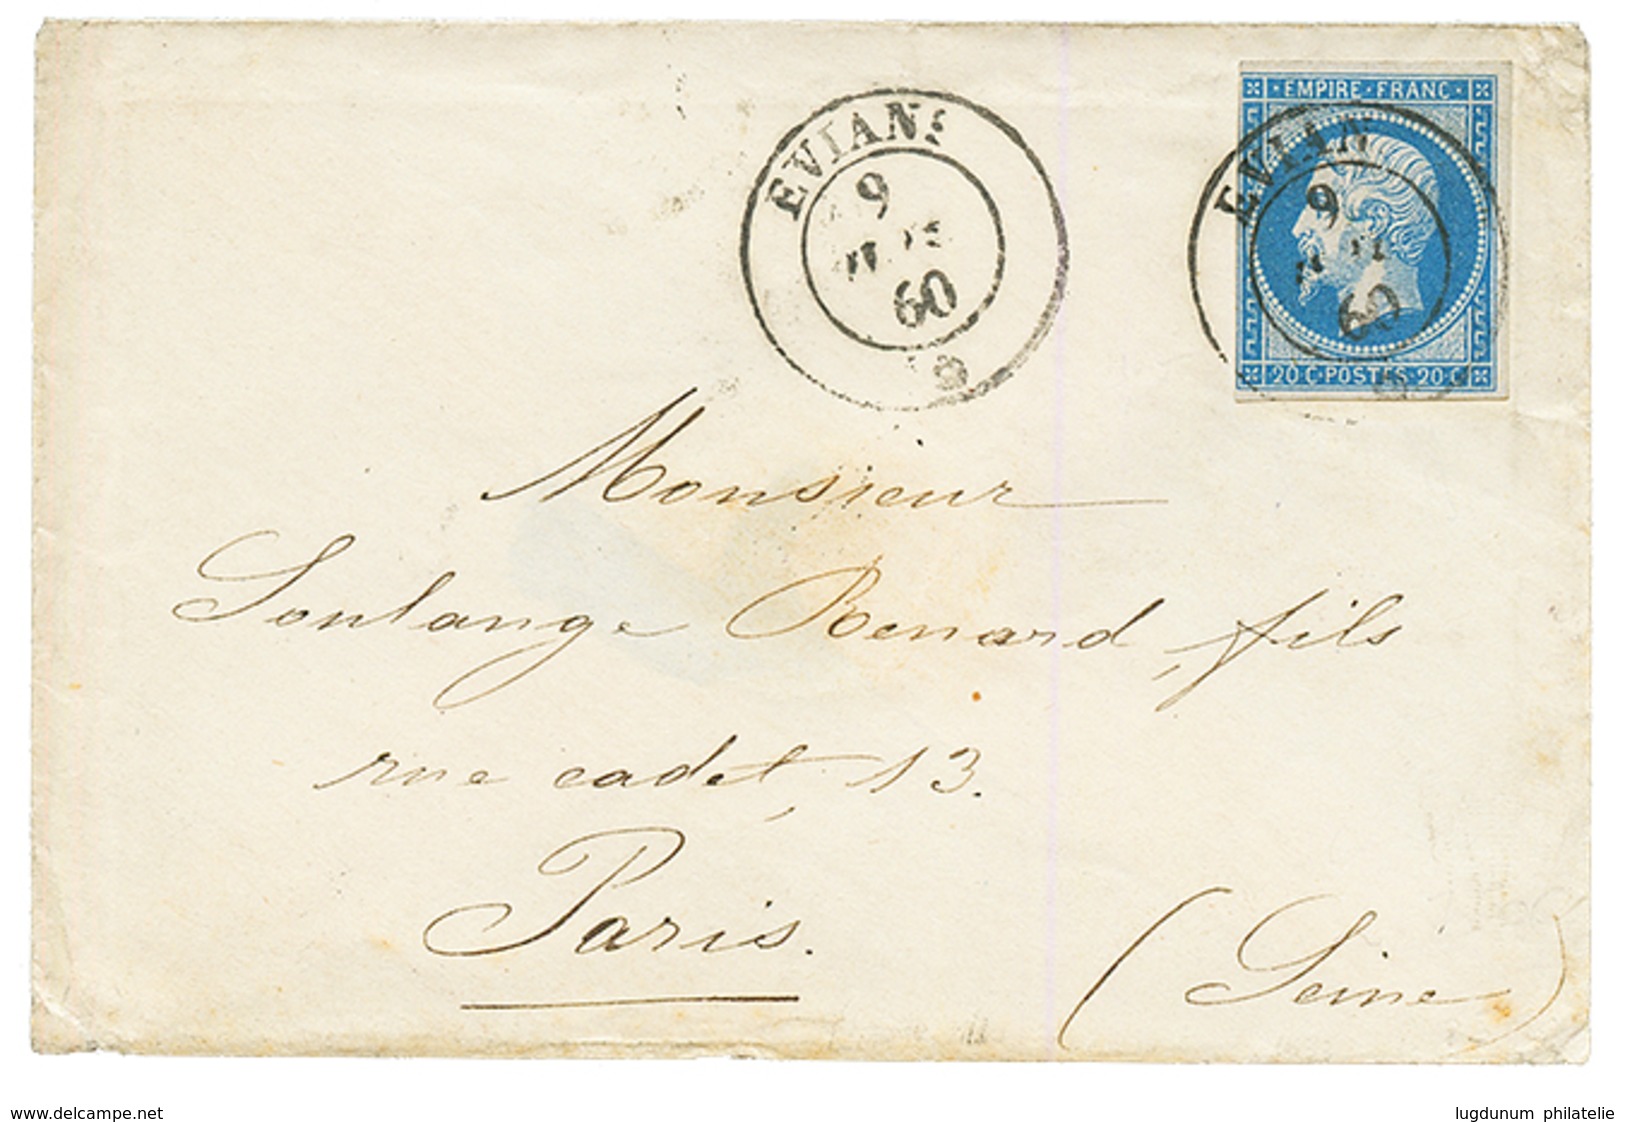 EVIAN
9
60
EMPIRE · FRANC
EVIAN
9
60
20 C · POSTES · 20 C
Monsieur
Soulange Renard, fils
rue cadet, 13.
Paris.
(Seine)
www.delcampe.net
lugdunum philatelie